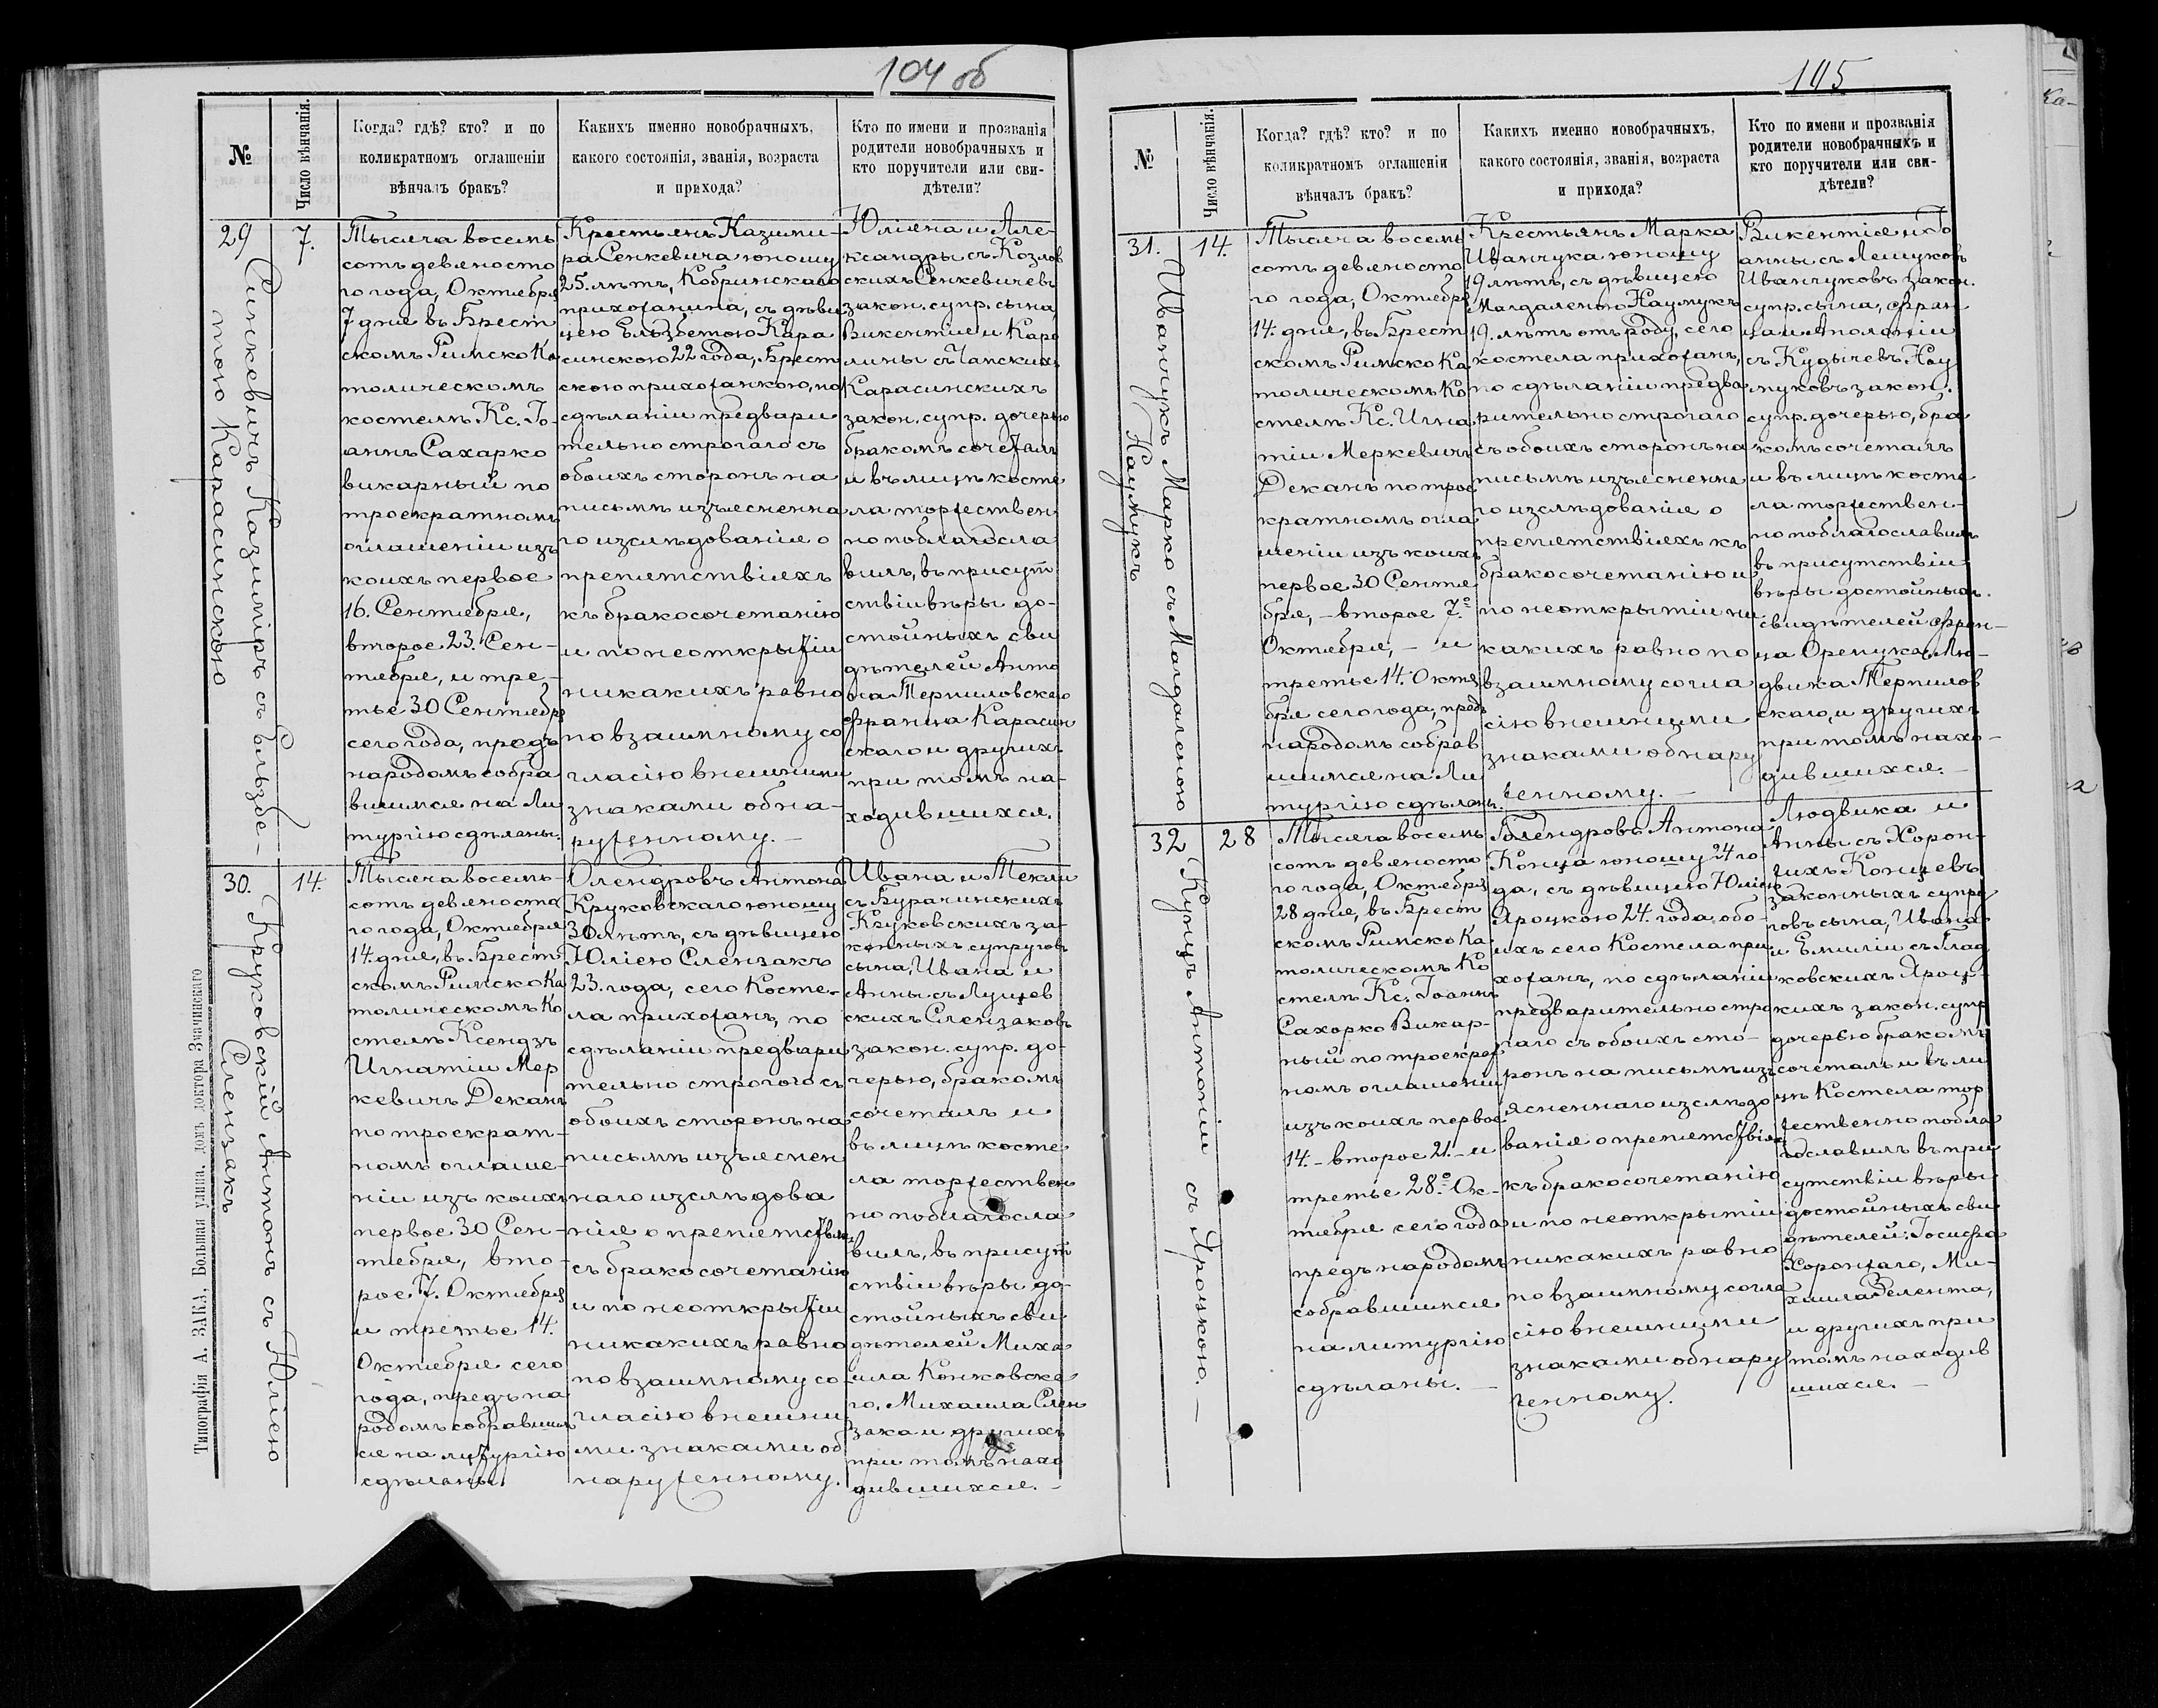 104 об
№
Число вѣнчанія.
Когда? гдѣ? кто? и по
коликратномъ оглашеніи
вѣнчалъ бракъ?
Какихъ именно новобрачныхъ,
какого состоянія, званія, возраста
и прихода?
Кто по имени и прозванія
родители новобрачныхъ и
кто поручители или сви-
дѣтели?
29
Синкевичъ Казимiръ съ Ельзбе-
тою Карасинскою
7.
Тысяча восемь
сотъ девяносто
го года, Октября
7 дня въ Брест
скомъ Римско Ка
толическомъ
костелѣ Кс. Іо-
аннъ Сахарко
викарный по
троекратномъ
оглашеніи изъ
коихъ первое
16. Сентября,
второе 23. Сен-
тября, и тре-
тье 30 Сентября
сего года, предъ
народомъ собра
вшимся на Ли
тургію сдѣланы.
Крестьянъ Казими-
ра Сенкевича юношу
25. лѣтъ, Кобринскаго
прихожанина, съ дѣви
цею Ельзбетою Кара
синскою 22 года, Брест
скою прихожанкою, по
сдѣланіи предвари
тельно строгаго съ
обоихъ сторонъ на
письмѣ изъясненна
го изслѣдованія о
препятствіяхъ
къ бракосочетанію
и по неоткрытіи
никакихъ равно
по взаимному со
гласію внешними
знаками обна-
руженному.—
Юліяна и Але-
ксандры съ Козлов
скихъ Сенкевичевъ
закон. супр. сына,
Викентія и Каро
лины съ Чапскихъ
Карасинскихъ
закон. супр. дочерью
бракомъ сочеталъ
и въ лицѣ косте
ла торжествен
но поблагосла
вилъ, въ присут
ствіи вѣры до-
стойныхъ сви
дѣтелей Анто
на Терпиловскаго
Франца Карасин
скаго и другихъ
при томъ на-
ходившихся.
30.
Круковскій Антонъ съ Юліею
Слензакъ
14.
Тысяча восемь-
сотъ девяноста
го года, Октября
14. дня, въ Брест
скомъ Римско Ка
толическомъ Ко
стелѣ Ксендзъ
Игнатіи Мер
кевичъ Деканъ
по троекрат-
номъ оглаше-
ніи изъ коихъ
первое 30 Сен-
тября, вто-
рое 7. Октября
и третье 14.
Октября сего
года, предъ на
родомъ собравшим
ся на литургію
сдѣланы.
Олендровъ Антона
Круковскаго юношу
30 лѣтъ, съ дѣвицею
Юліею Слензакъ
23. года, сего Косте-
ла прихожанъ, по
сдѣланіи предвари
тельно строгого съ
обоихъ сторонъ на
письмѣ изъяснен
наго изслѣдова
нія о препятствіяхъ
съ бракосочетанію
и по неоткрытіи
никакихъ равно
по взаимному со-
гласію внешни
ми знаками об
наруженному.
Ивана и Текли
съ Бурачинскихъ
Круковскихъ за-
конныхъ супруговъ
сына, Ивана и
Анны съ Луцев
скихъ Слензаковъ
закон. супр. до-
черью, бракомъ
сочеталъ и
въ лицѣ косте
ла торжествен
но поблагосла
вилъ, въ присут
ствіи вѣры до-
стойныхъ сви
дѣтелей Миха
ила Конковска
го, Михаила Слен
зака и другихъ
при томъ нахо
дившихся.—
Типографія А. ЗАКА, Большая улица, домъ доктора Значинскаго
105
№
Число вѣнчанія.
Когда? гдѣ? кто? и по
коликратномъ оглашеніи
вѣнчалъ бракъ?
Какихъ именно новобрачныхъ,
какого состоянія, званія, возраста
и прихода?
Кто по имени и прозванія
родители новобрачныхъ и
кто поручители или сви-
дѣтели?
31.
Иванчукъ Марко съ Магдаленою
Наумукъ
14.
Тысяча восемь
сотъ девяносто
го года, Октября
14. дня, въ Брест
скомъ Римско Ка
толическомъ Ко
стелѣ Кс. Игна
тіи Меркевичъ
Деканъ по трое
кратномъ огла
шеніи изъ коихъ
первое 30 Сентя
бря, — второе 7.
Октября, — и
третье 14. Октя
бря сего года, предъ
народомъ собрав
шимся на Ли
тургію сдѣланы.
Крестьянъ Марка
Иванчука юношу
19 лѣтъ, съ дѣвицею
Магдаленою Наумукъ
19. лѣтъ отъ роду, сего
костела прихожанъ,
по сдѣланіи предва
рительно строгаго
съ обоихъ сторонъ на
письмѣ изъясненна
го изслѣдованія о
препятствіяхъ къ
бракосочетанію и
по неоткрытіи ни
какихъ равно по
взаимному согла
сію внешними
знаками обнару
женному.—
Викентія и Іо
анны съ Лещуковъ
Иванчуковъ закон.
супр. сына, Фран
ца и Аполоніи
съ Кудычевъ Нау
муковъ закон.
супр. дочерью, бра
комъ сочеталъ
и въ лицѣ косте
ла торжествен-
но поблагославилъ
въ присутствіи
вѣры достойныхъ
свидѣтелей Фран-
ца Орепука, Лю-
двика Терпилов
скаго, и другихъ
при томъ нахо-
дившихся.—
32
Концъ Антоній съ Яроцкою.—
28
Тысяча восемь
сотъ девяносто
го года, Октября
28 дня, въ Брест
скомъ Римско Ка
толическомъ Ко
стелѣ Кс. Іоаннъ
Сахорко Викар-
ный по троекрат
номъ оглашеніи
изъ коихъ первое
14. — второе 21. — и
третье 28. Ок-
тября сего года
предъ народомъ
собравшимся
на литургію
сдѣланы.—
Голендровъ Антона
Конца юношу 24 го-
да, съ дѣвицею Юліею
Яроцкою 24. года, обо-
ихъ сего Костела при
хожанъ, по сдѣланіи
предварительно стро
гаго съ обоихъ сто-
ронъ на письмѣ изъ
ясненнаго изслѣдо
ванія о препятствіяхъ
къ бракосочетанію
и по неоткрытіи
никакихъ равно
по взаимному согла
сію внешними
знаками обнару
женному.
Людвика и
Анны съ Хорон-
жихъ Концевъ
законныхъ супру
говъ сына, Ивана
и Емиліи съ Глад
ковскихъ Яроц-
кихъ закон. супр
дочерью бракомъ
сочеталъ и въ ли
цѣ Костела тор
жественно побла
гославилъ въ при
сутствіи вѣры
достойныхъ сви
дѣтелей: Іосифа
Хоронжаго, Ми-
хаила Зелента,
и другихъ при
томъ находив
шихся.—